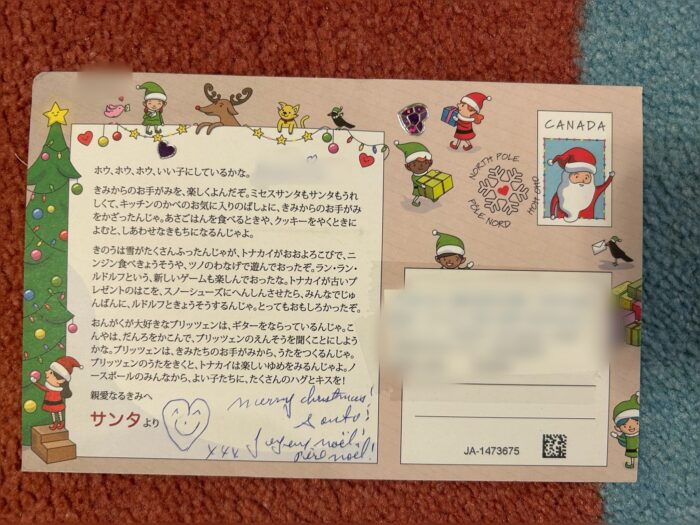 ホウ、ホウ、ホウ、いい子にしているかな。
きみからのお手がみを、楽しくよんだぞ。ミセスサンタもサンタもうれ
しくて、キッチンのかべのお気に入りのばしょに、きみからのお手がみ
をかざったんじゃ。あさごはんを食べるときや、クッキーをやくときに
よむと、しあわせなきもちになるんじゃよ。
きのうは雪がたくさんふったんじゃが、トナカイがおおよろこびで、ニ
ンジン食べきょうそうや、ツノのわなげで遊んでおったぞ。ラン・ラン・
ルドルフという、新しいゲームも楽しんでおったな。トナカイが古いプ
レゼントのはこを、スノーシューズにへんしんさせたら、みんなでじゅ
んばんに、ルドルフときょうそうするんじゃ。とってもおもしろかったぞ。
おんがくが大好きなブリッツェンは、ギターをならっているんじゃ。こ
んやは、だんろをかこんで、ブリッツェンのえんそうを聞くことにしよう
かな。ブリッツェンは、きみたちのお手がみから、うたをつくるんじゃ。
ブリッツェンのうたをきくと、トナカイは楽しいゆめをみるんじゃよ。ノ
ースポールのみんなから、よい子たちに、たくさんのハグとキスを!
親愛なるきみへ
サンタより
merry christmas!
Santa!
Joyeux noël!
père noël!
xxx
NORTH POLE
PÔLE NORD
HOH OHO
CANADA
JA-1473675